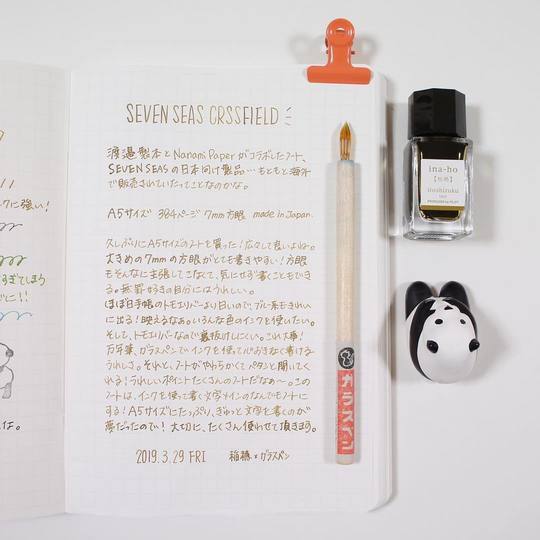 SEVEN SEAS CRSSFIELD
渡邉製本とNanami Paperがコラボしたノート、
SEVEN SEASの日本向け製品…もともと海外
で販売されていたってことなのかな。
A5サイズ 384ページ 7mm方眼 made in Japan.
久しぶりにA5サイズのノートを買った！広々して良いよね。
大きめの7mmの方眼がとても書きやすい！方眼
もそんなに主張してこなくて、気にせず書くこともでき
る。無罫好きの自分にはうれしい。
ほぼ日手帳のトモエリバーより白いので、ブルー系もきれい
に出る！映えるなぁ。いろんな色のインクを使いたい。
そして、トモエリバーなので裏抜けしにくい。これ大事！
万年筆、ガラスペンでインクを使って心おきなく書ける
うれしさ。それと、ノートがやわらかくてパタンと開いてく
れる！うれしいポイントたくさんのノートだなぁ〜。この
ノートは、インクを使って書く文字メインのなんでもノートに
する！A5サイズにたっぷり、ぎゅっと文字を書くのが
夢だったので！大切に、たくさん使わせて頂きます。
2019.3.29 FRI 稲穂×ガラスペン
クに強い！
すぎてしまう
な。
ガラスペン
ina-ho
【稲穂】
iroshizuku